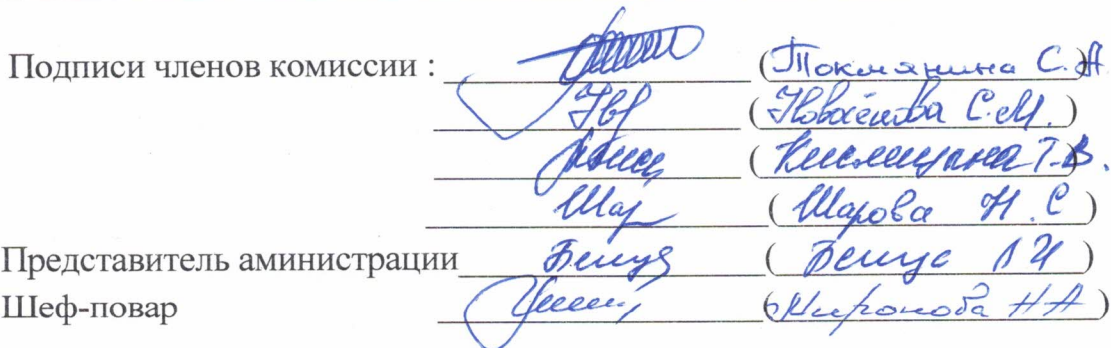 Подписи членов комиссии : (Токмянина С.А.
(Новосёлова С.М.)
(Кислицына Т.В.
Шар (Шарова Н.С)
Представитель аминистрации (Л И)
Шеф-повар (Миронова НА)